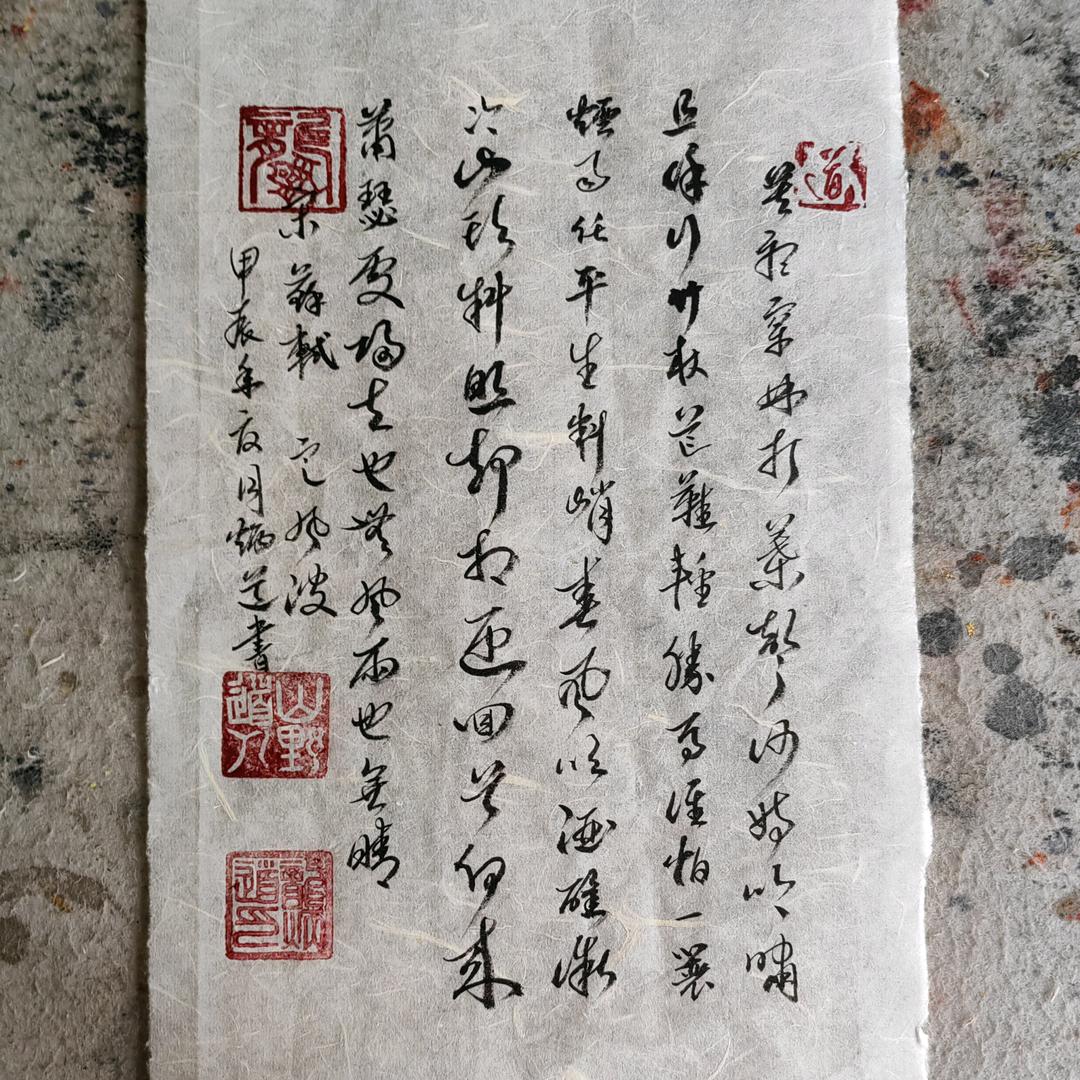 道
莫聽穿林打葉聲何妨吟嘯
且徐行竹杖芒鞋輕勝馬誰怕一蓑
煙雨任平生料峭春風吹酒醒微
冷山頭斜照卻相迎回首向來
蕭瑟處歸去也無風雨也無晴
宋蘇軾 定風波
甲辰年夏月炳道書
山野
道人